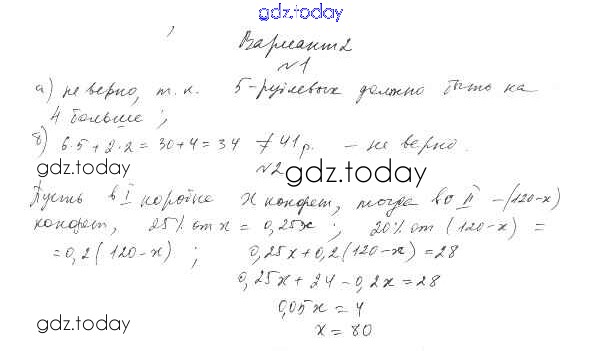 gdz.today
Вариант 2
№1
а) не верно, т.к. 5-рублевых должно быть на
4 больше;
б) 6·5+2·2=30+4=34 ≠ 41 р. – не верно.
gdz.today
№2
gdz.today
Пусть в I коробке x конфет, тогда во II – (120-x)
конфет, 25% от x = 0,25x; 20% от (120-x) =
=0,2(120-x); 0,25x+0,2(120-x)=28
0,25x+24-0,2x=28
0,05x=4
gdz.today
x=80